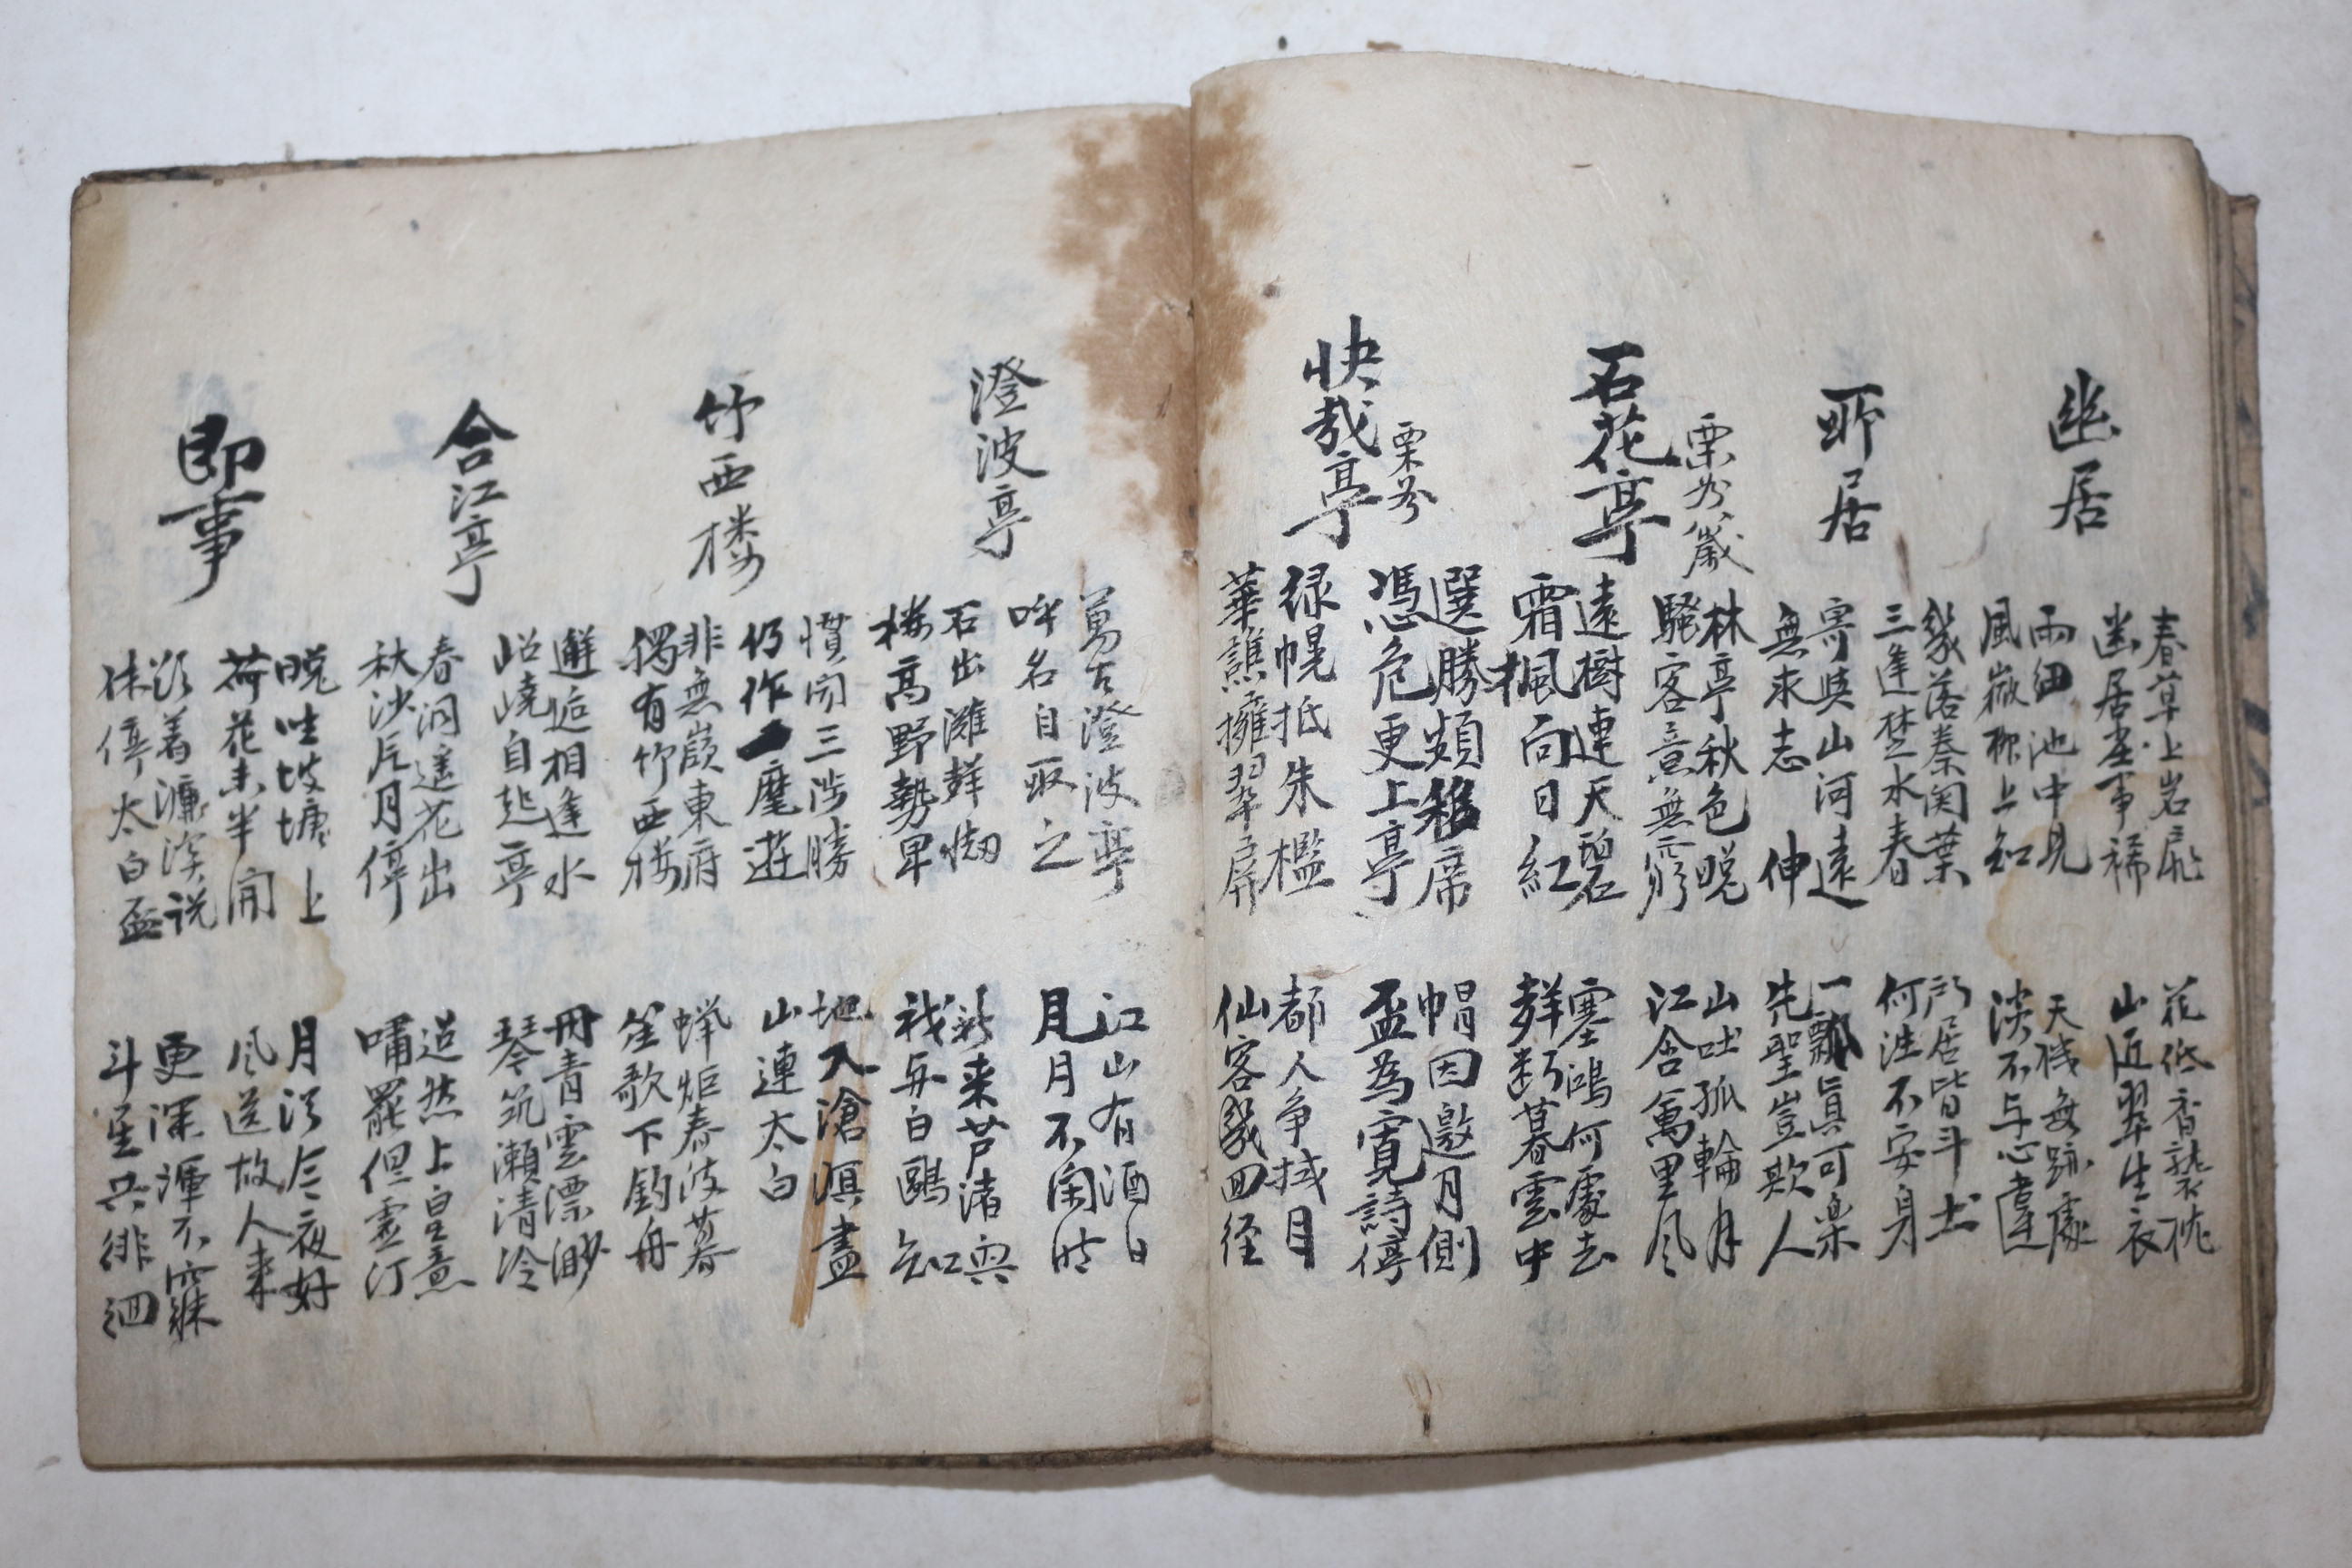 幽居
春草上岩扉
幽居塵事稀
花低香襲枕
山近翠生衣
雨細池中見
風微柳上知
天機無跡處
淡不与心違
所居
幾落秦関葉
三逢楚水春
所居皆斗土
何往不安身
寄與山河遠
無求志 伸
一瓢真可楽
先聖豈欺人
石花亭
栗谷 歲
林亭秋色晩
騷客意無窮
山吐孤輪月
江含萬里风
遠樹連天碧
霜楓向日紅
塞鴻何處去
群断暮雲中
快哉亭
栗谷
選勝頻移席
憑危更上亭
帽因邀月側
盃為寛詩停
緑幌抵朱檻
華譙擁翠屏
都人争拭目
仙客幾回径
澄波亭
萬古澄波亭
呼名自取之
江山有酒日
見月不閑时
石出灘群
楼高野勢卑
新来芦渚興
我与白鷗知
竹西楼
慣闻三涉勝
仍作一麾遊
地入滄溟盡
山連太白
非無嶺東府
獨有竹西楼
炬春波暮
笙歌下釣舟
合江亭
邂逅相逢水
岧嶢自起亭
丹青雲漂渺
琴筑瀬清冷
春洞遥花出
秋沙片月停
迢然上皇意
嘯罷但雲汀
即事
晩坐坡塘上
荷花未半開
月得今夜好
风送故人来
欲着濂溪说
休停太白盃
更深渾不寐
斗星共徘徊